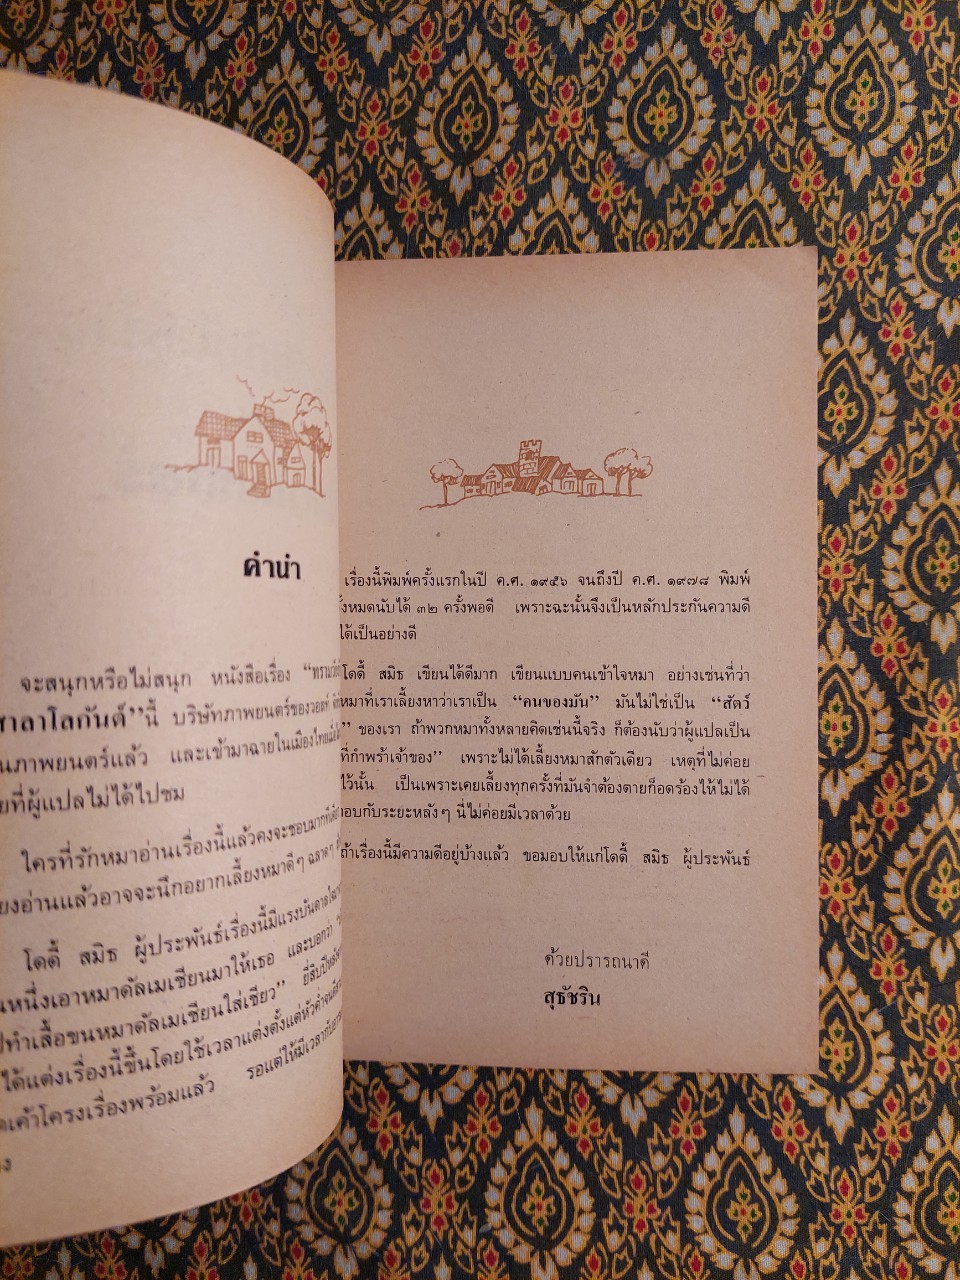 คำนำ
จะสนุกหรือไม่สนุก หนังสือเรื่อง
สาลาโลกันต์" นี้ บริษัทภาพยนตร์ของวอลท์
นภาพยนตร์แล้ว และเข้ามาฉายในเมืองไทย
ยที่ผู้แปลไม่ได้ไปชม
ใครที่รักหมาอ่านเรื่องนี้แล้วคงจะชอบมาก
ยงอ่านแล้วอาจจะนึกอยากเลี้ยงหมาดีๆ ฉลาดๆ
โดดี้ สมิธ ผู้ประพันธ์เรื่องนี้มีแรงบันดาล
นหนึ่งเอาหมาดัลเมเชียนมาให้เธอ และบอกว่า
ปทำเสื้อขนหมาดัลเมเชียนใส่เชียว" ยี่สิบปี
ได้แต่งเรื่องนี้ขึ้นโดยใช้เวลาแต่งตั้งแต่หัวค่ำ
เค้าโครงเรื่องพร้อมแล้ว รอแต่ให้มีเวลา
ง
เรื่องนี้พิมพ์ครั้งแรกในปี ค.ศ. ๑๙๕๖ จนถึงปี ค.ศ. ๑๙๗๘ พิมพ์
ั้งหมดนับได้ ๓๒ ครั้งพอดี เพราะฉะนั้นจึงเป็นหลักประกันความดี
ได้เป็นอย่างดี
โดดี้ สมิธ เขียนได้ดีมาก เขียนแบบคนเข้าใจหมา อย่างเช่นที่ว่า
หมาที่เราเลี้ยงหาว่าเราเป็น "คนของมัน" มันไม่ใช่เป็น "สัตว์
" ของเรา ถ้าพวกหมาทั้งหลายคิดเช่นนี้จริง ก็ต้องนับว่าผู้แปลเป็น
ที่กำพร้าเจ้าของ" เพราะไม่ได้เลี้ยงหมาสักตัวเดียว เหตุที่ไม่ค่อย
ไว้นั้น เป็นเพราะเคยเลี้ยงทุกครั้งที่มันจำต้องตายก็อดร้องไห้ไม่ได้
อบกับระยะหลังๆ นี่ไม่ค่อยมีเวลาด้วย
ถ้าเรื่องนี้มีความดีอยู่บ้างแล้ว ขอมอบให้แก่โดดี้ สมิธ ผู้ประพันธ์
ด้วยปรารถนาดี
สุธัชริน